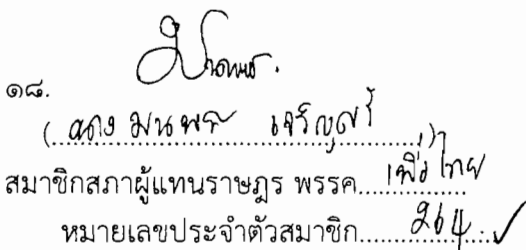 ๑๘.
(นาง มนพร เจริญศรี)
สมาชิกสภาผู้แทนราษฎร พรรค เพื่อไทย
หมายเลขประจำตัวสมาชิก 264 ✓